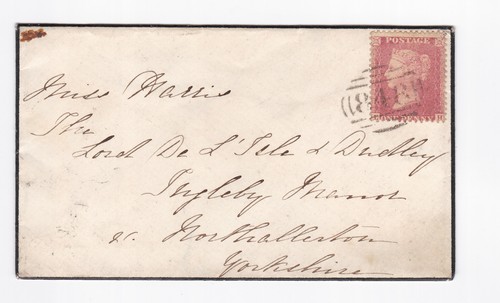 POSTAGE
Miss Harris
The
Lord De L'Isle & Dudley
Ingleby Manor
Nr. Northallerton
Yorkshire